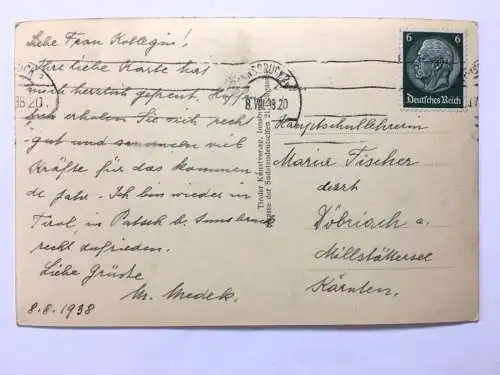 Liebe Frau Kollegin!
Ihre liebe Karte hat
mich herzlich gefreut. Hoffent-
lich erholen Sie sich recht
gut und sammeln viel
Kräfte für das kommen-
de Jahr. Ich bin wieder in
Tirol, in Patsch b. Innsbruck
recht zufrieden.
Liebe Grüße
M. Medek.
8.8.1938
Tiroler Kunstverlag,
INNSBRUCK 2
8.VIII.38.20
38.20
6 6
Deutsches Reich
Hauptschullehrerin
Marie Fischer
derzt
Döbriach a.
Millstättersee
Kärnten.